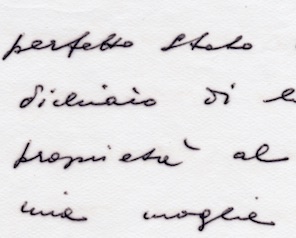 perfetto stato
dichiaro di
proprietà al
mia moglie